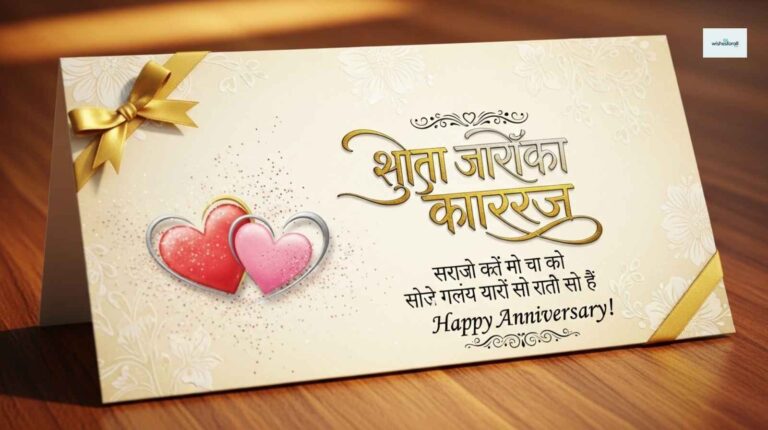 wishesforall
श्रुोता जारोंका
काररिज
सराजो कतें मो चा को
सोर्ज़ गलंय यारों सो रातो सो हैं
Happy Anniversary!